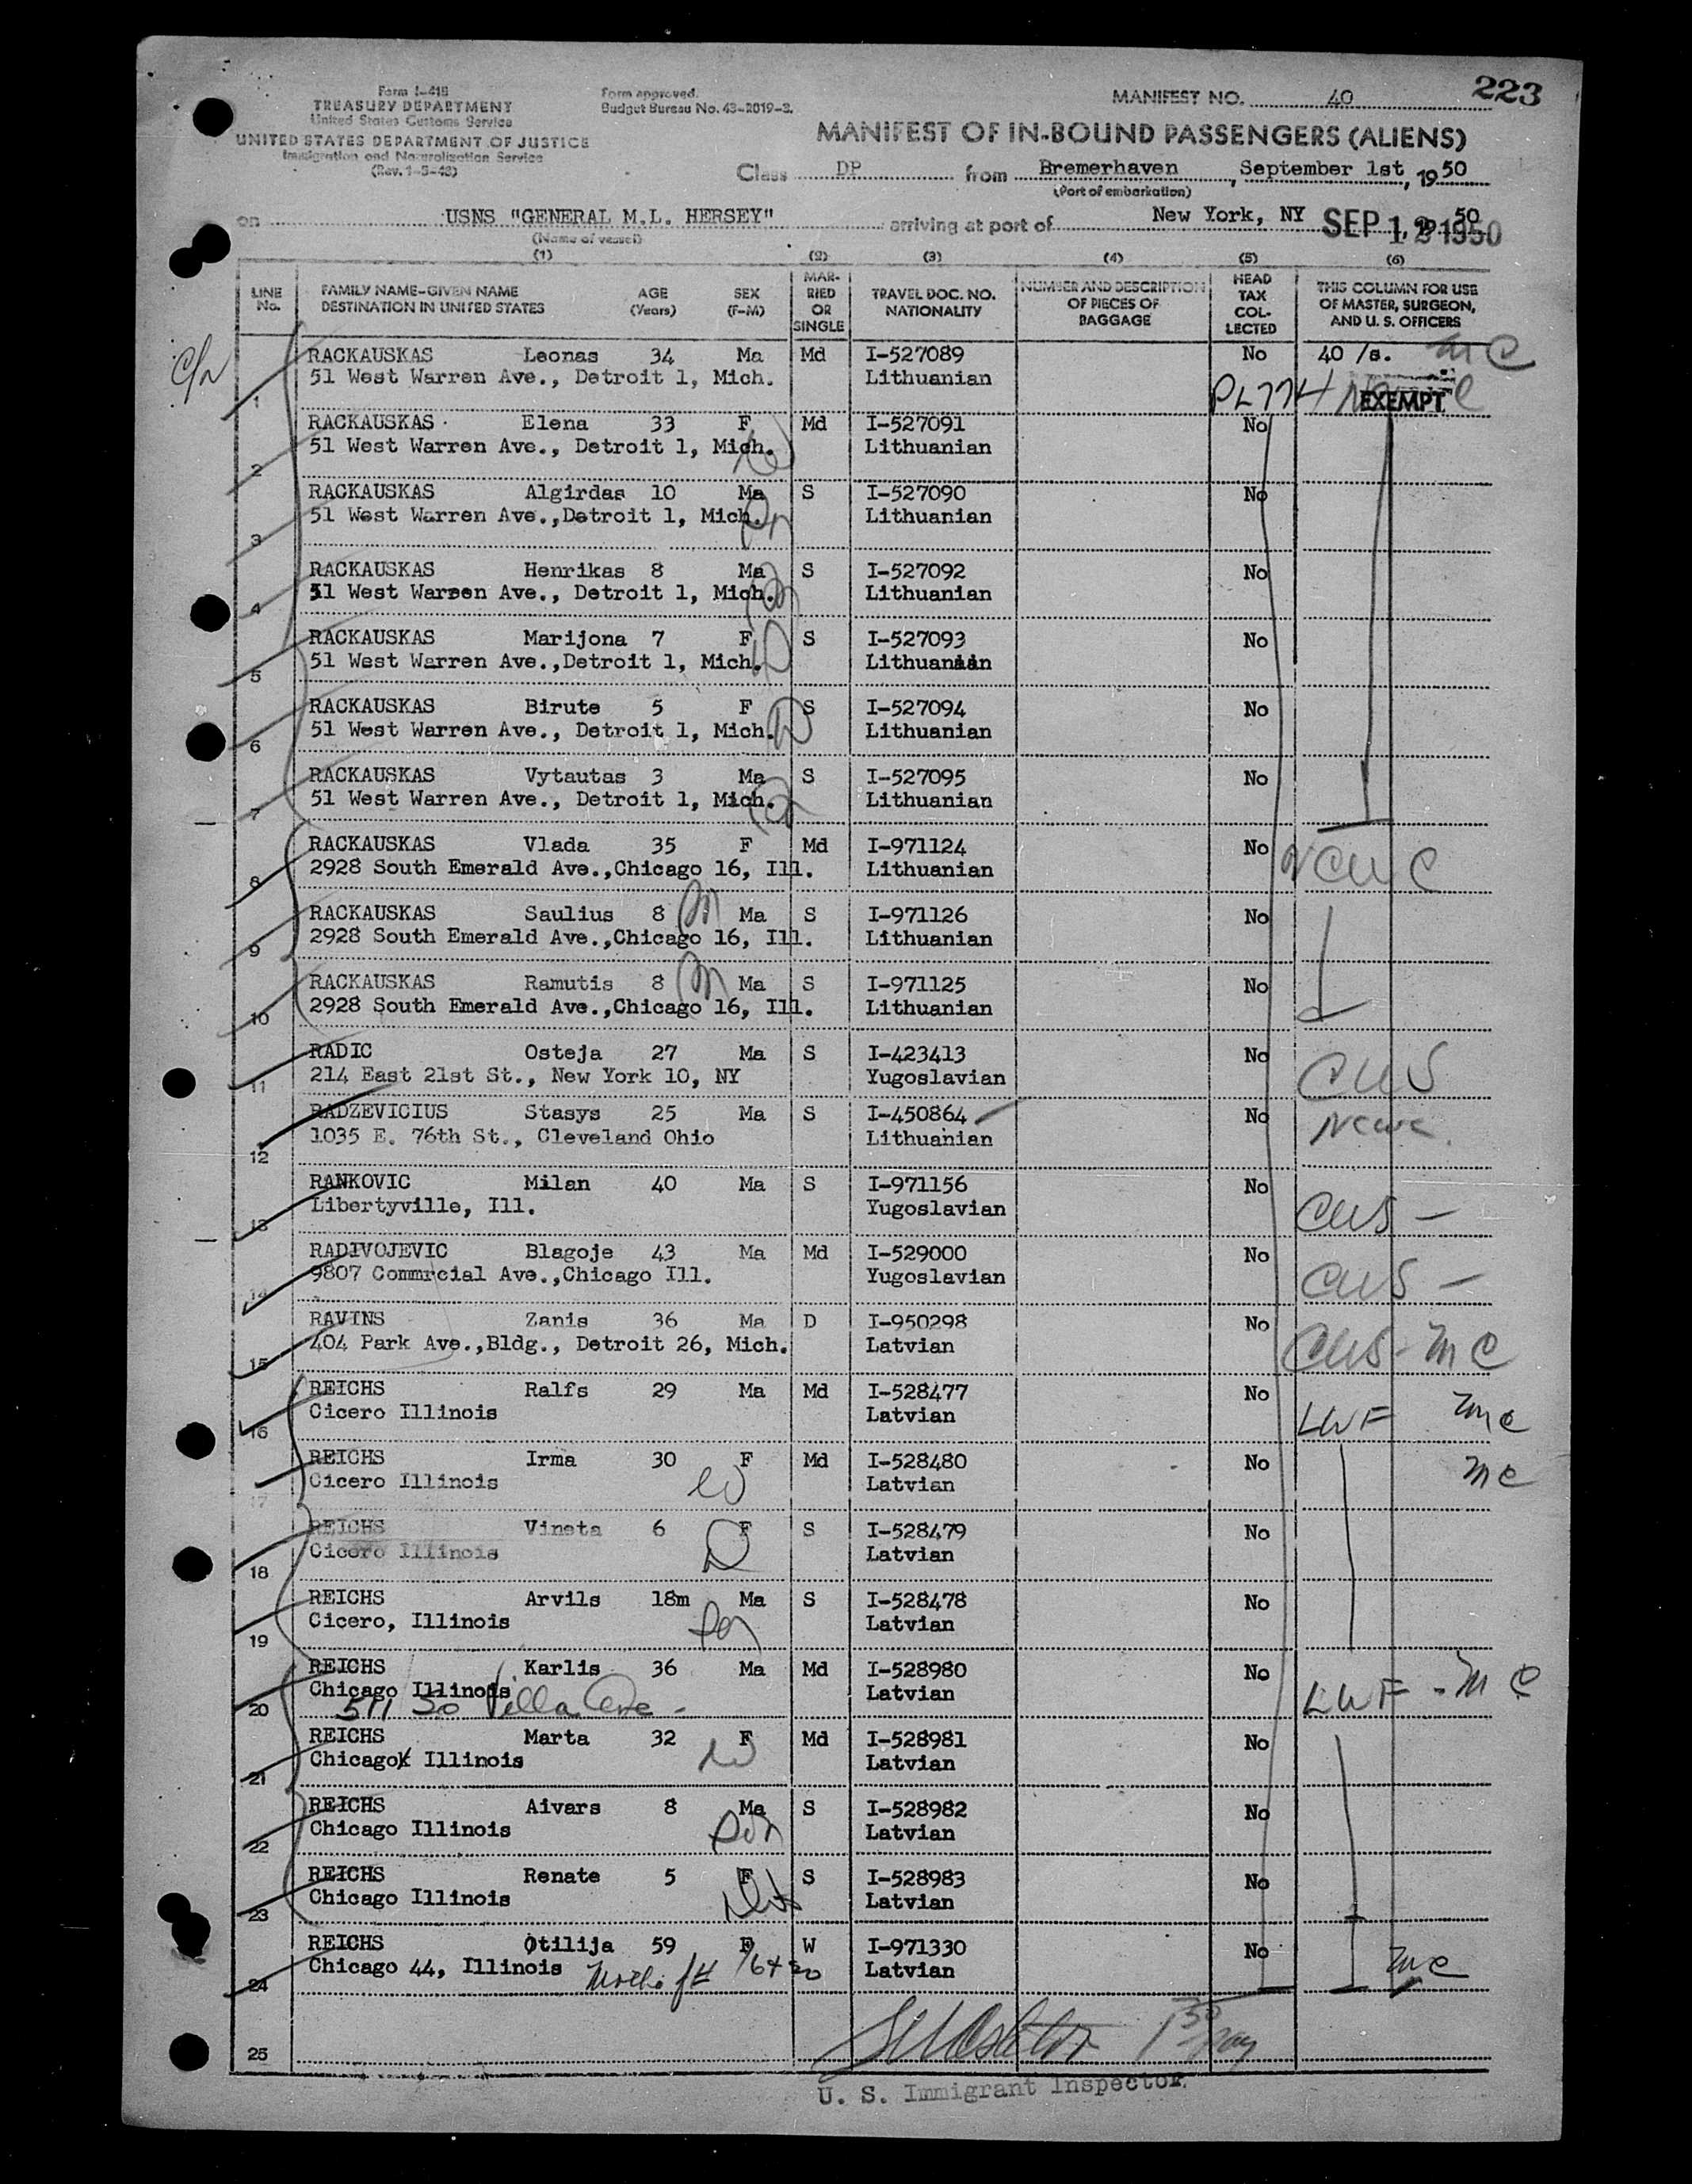 223
Form I-418
TREASURY DEPARTMENT
United States Customs Service
UNITED STATES DEPARTMENT OF JUSTICE
Immigration and Naturalization Service
(Rev. 1-3-48)
Form approved.
Budget Bureau No. 43-2019-3.
MANIFEST NO. 40
MANIFEST OF IN-BOUND PASSENGERS (ALIENS)
Class DP from Bremerhaven, September 1st, 1950
(Port of embarkation)
on USNS "GENERAL M.L. HERSEY" arriving at port of New York, NY SEP 12 1950, 1950
(Name of vessel)
(1) (2) (3) (4) (5) (6)
LINE No. FAMILY NAME-GIVEN NAME DESTINATION IN UNITED STATES AGE (Years) SEX (F-M) MARRIED OR SINGLE TRAVEL DOC. NO. NATIONALITY NUMBER AND DESCRIPTION OF PIECES OF BAGGAGE HEAD TAX COLLECTED THIS COLUMN FOR USE OF MASTER, SURGEON, AND U. S. OFFICERS
RACKAUSKAS Leonas 34 Ma Md I-527089 No 40 /s. MC
1 51 West Warren Ave., Detroit 1, Mich. Lithuanian PL774 EXEMPT
RACKAUSKAS Elena 33 F Md I-527091 No
2 51 West Warren Ave., Detroit 1, Mich. Lithuanian
RACKAUSKAS Algirdas 10 Ma S I-527090 No
3 51 West Warren Ave.,Detroit 1, Mich. Lithuanian
RACKAUSKAS Henrikas 8 Ma S I-527092 No
4 51 West Warren Ave., Detroit 1, Mich. Lithuanian
RACKAUSKAS Marijona 7 F S I-527093 No
5 51 West Warren Ave.,Detroit 1, Mich. Lithuanian
RACKAUSKAS Birute 5 F S I-527094 No
6 51 West Warren Ave., Detroit 1, Mich. Lithuanian
RACKAUSKAS Vytautas 3 Ma S I-527095 No
7 51 West Warren Ave., Detroit 1, Mich. Lithuanian
RACKAUSKAS Vlada 35 F Md I-971124 No NCWC
8 2928 South Emerald Ave.,Chicago 16, Ill. Lithuanian
RACKAUSKAS Saulius 8 Ma S I-971126 No
9 2928 South Emerald Ave.,Chicago 16, Ill. Lithuanian
RACKAUSKAS Ramutis 8 Ma S I-971125 No
10 2928 South Emerald Ave.,Chicago 16, Ill. Lithuanian
RADIC Osteja 27 Ma S I-423413 No CWS
11 214 East 21st St., New York 10, NY Yugoslavian
RADZEVICIUS Stasys 25 Ma S I-450864 No NCWC
12 1035 E. 76th St., Cleveland Ohio Lithuanian
RANKOVIC Milan 40 Ma S I-971156 No CWS -
13 Libertyville, Ill. Yugoslavian
RADIVOJEVIC Blagoje 43 Ma Md I-529000 No CWS -
14 9807 Commrcial Ave.,Chicago Ill. Yugoslavian
RAVINS Zanis 36 Ma D I-950298 No CWS - MC
15 404 Park Ave.,Bldg., Detroit 26, Mich. Latvian
REICHS Ralfs 29 Ma Md I-528477 No LWF MC
16 Cicero Illinois Latvian
REICHS Irma 30 F Md I-528480 No MC
17 Cicero Illinois Latvian
REICHS Vineta 6 F S I-528479 No
18 Cicero Illinois Latvian
REICHS Arvils 18m Ma S I-528478 No
19 Cicero, Illinois Latvian
REICHS Karlis 36 Ma Md I-528980 No LWF - MC
20 Chicago Illinois Latvian
511 So Villa Ave -
REICHS Marta 32 F Md I-528981 No
21 Chicago Illinois Latvian
REICHS Aivars 8 Ma S I-528982 No
22 Chicago Illinois Latvian
REICHS Renate 5 F S I-528983 No
23 Chicago Illinois Latvian
REICHS Otilija 59 F W I-971330 No MC
24 Chicago 44, Illinois Latvian
25
U. S. Immigrant Inspector.